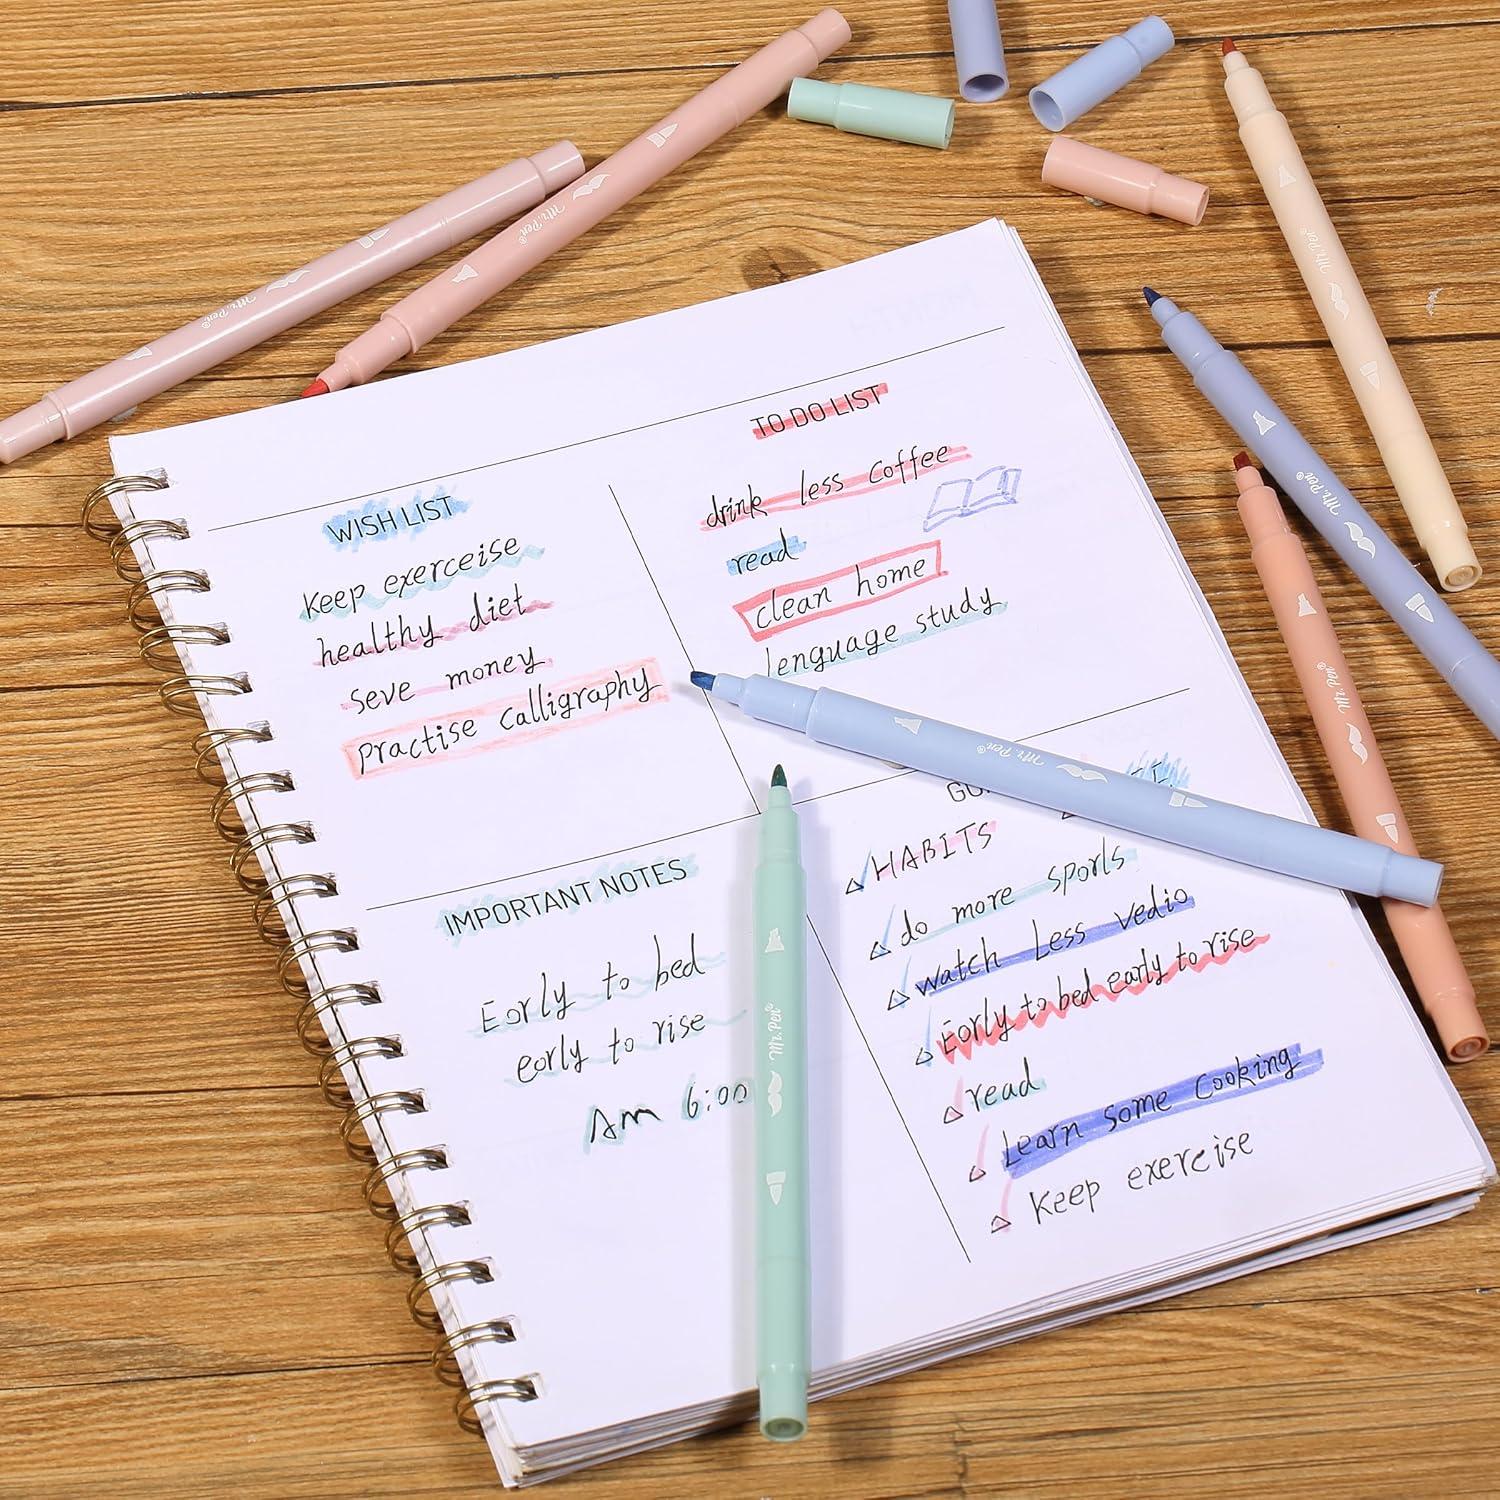 WISH LIST
Keep exerceise
healthy diet
seve money
practise calligraphy
TO DO LIST
drink less coffee
read
clean home
lenguage study
IMPORTANT NOTES
Early to bed
early to rise
Am 6:00
HABITS
do more sports
watch Less vedio
Early to bed early to rise
read
Learn some cooking
Keep exercise
Mr. Pen®
Mr. Pen®
Mr. Pen®
Mr. Pen®
Mr. Pen®
Mr. Pen®
Mr. Pen®